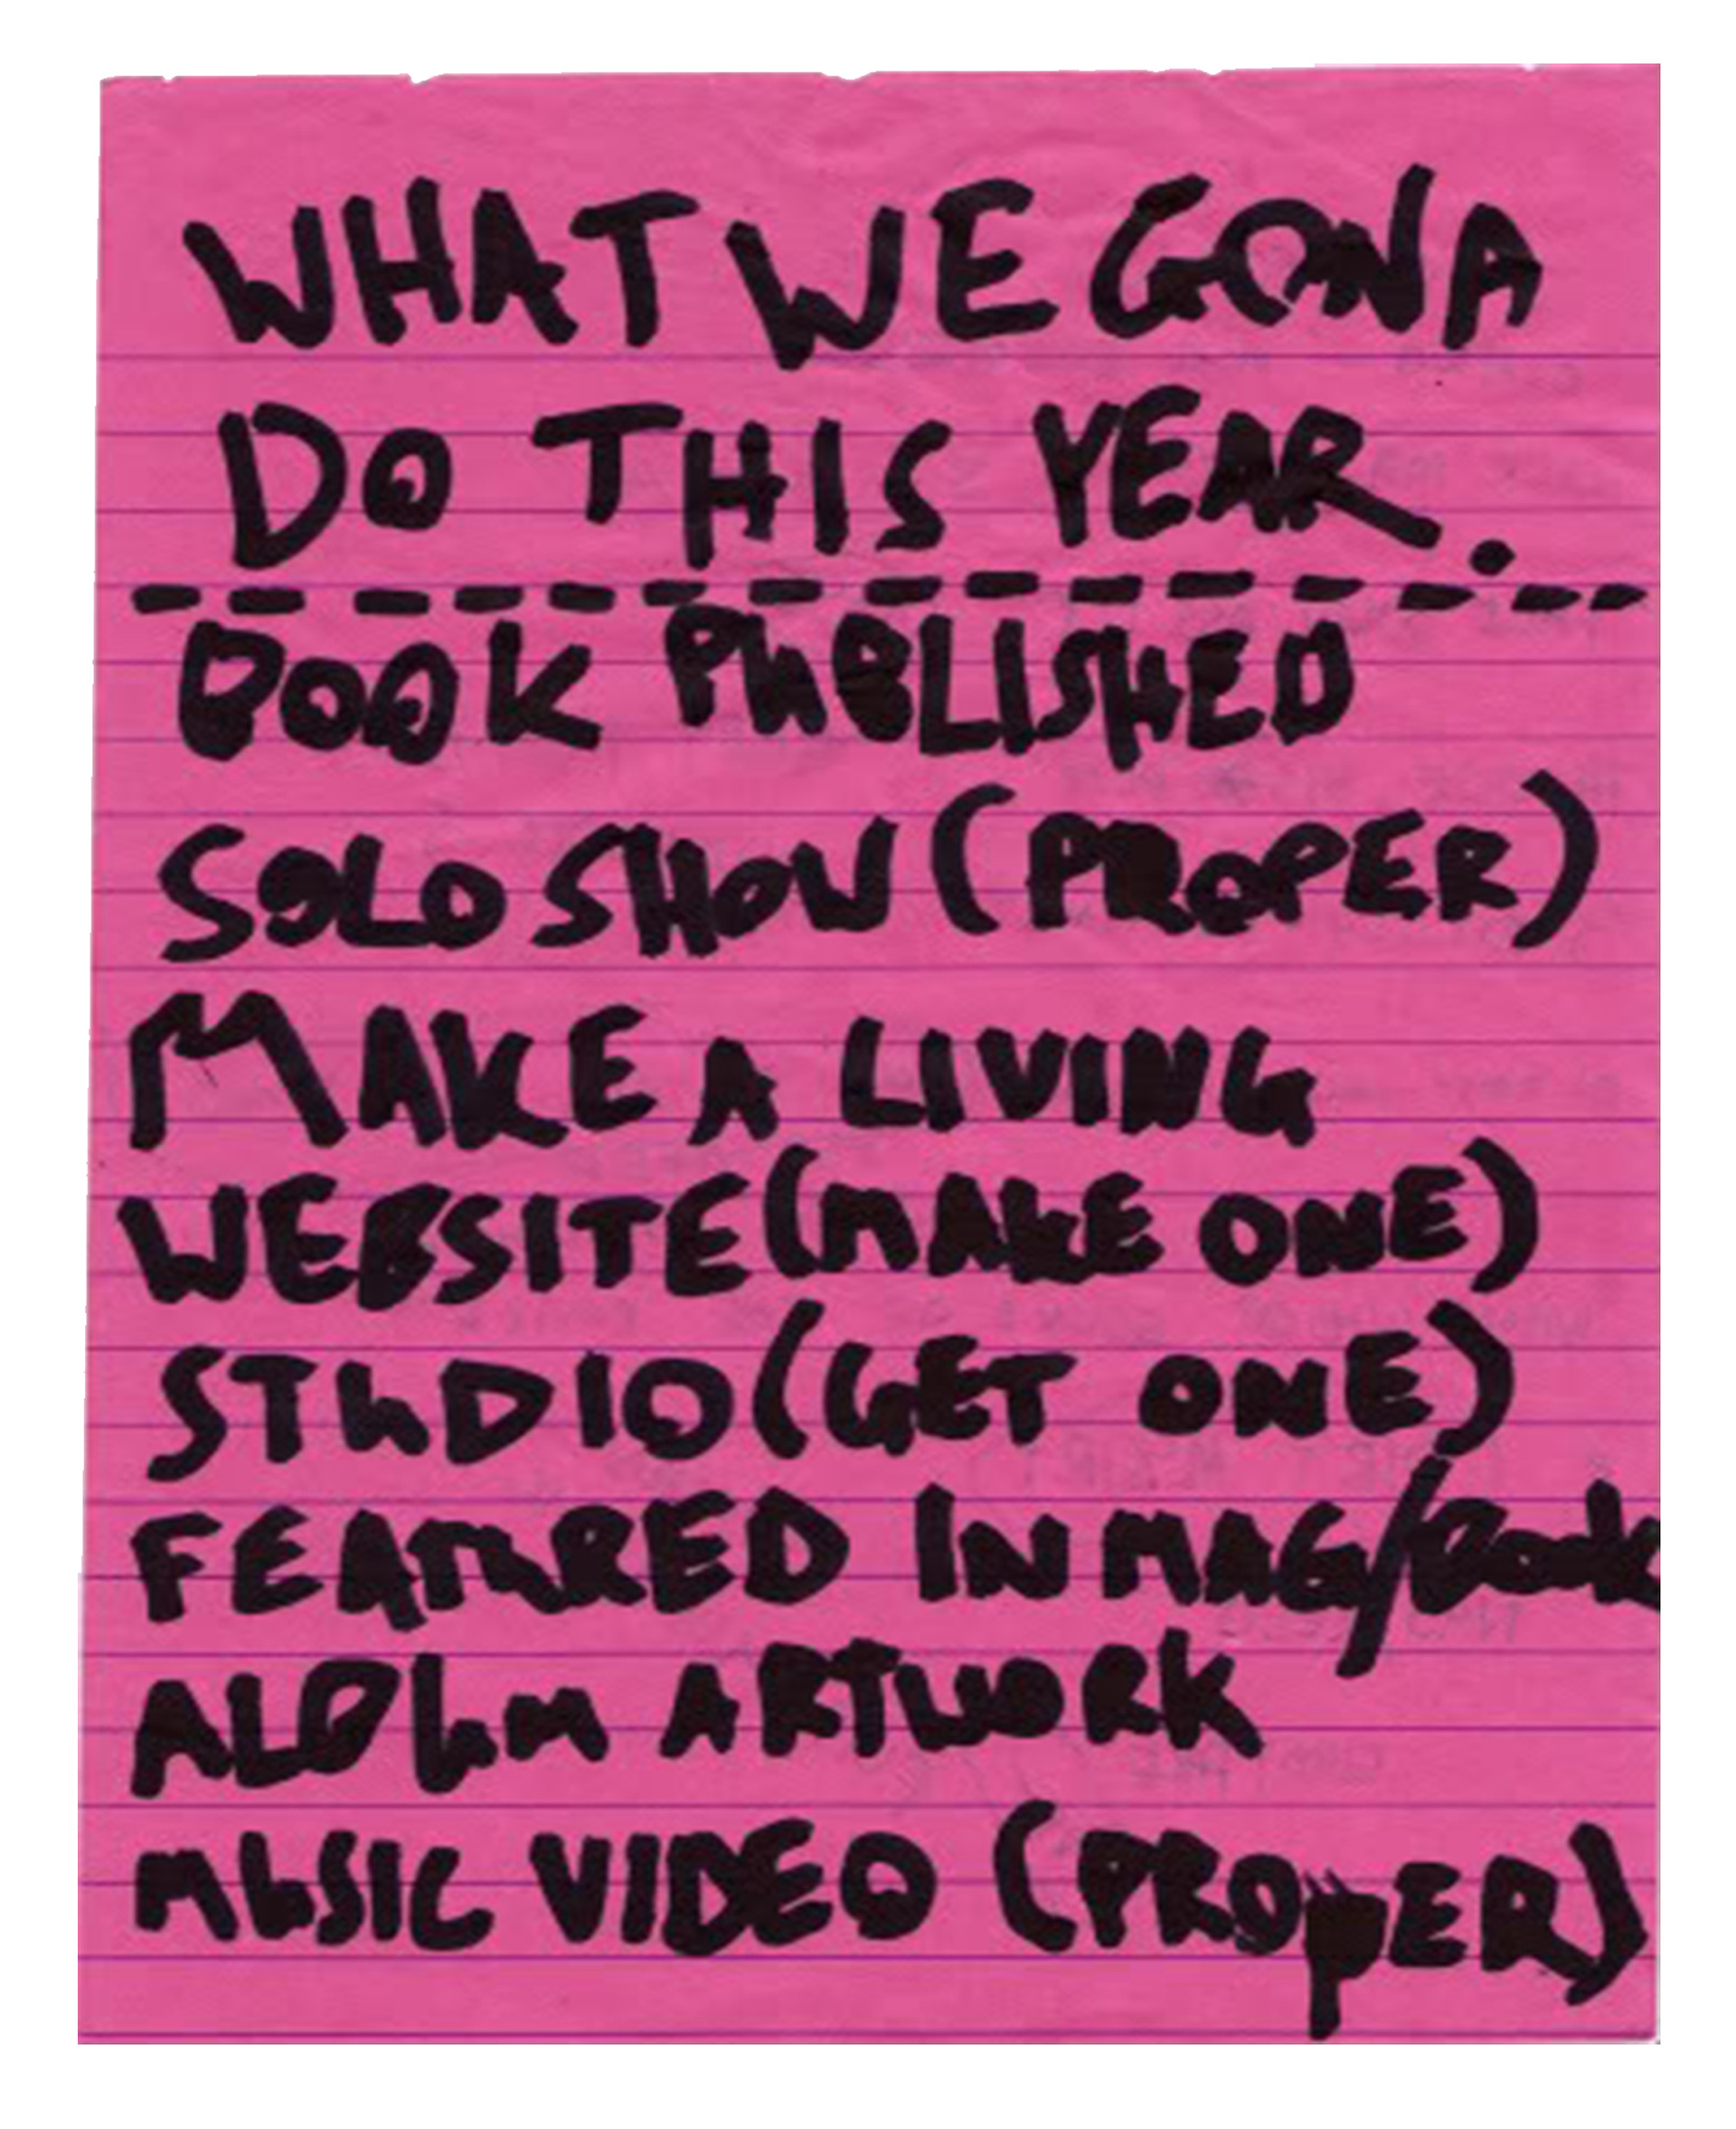 WHAT WE GONA
DO THIS YEAR.
BOOK PUBLISHED
SOLO SHOW (PROPER)
MAKE A LIVING
WEBSITE (MAKE ONE)
STUDIO (GET ONE)
FEATURED IN MAG/Book
ALBUM ARTWORK
MUSIC VIDEO (PROPER)